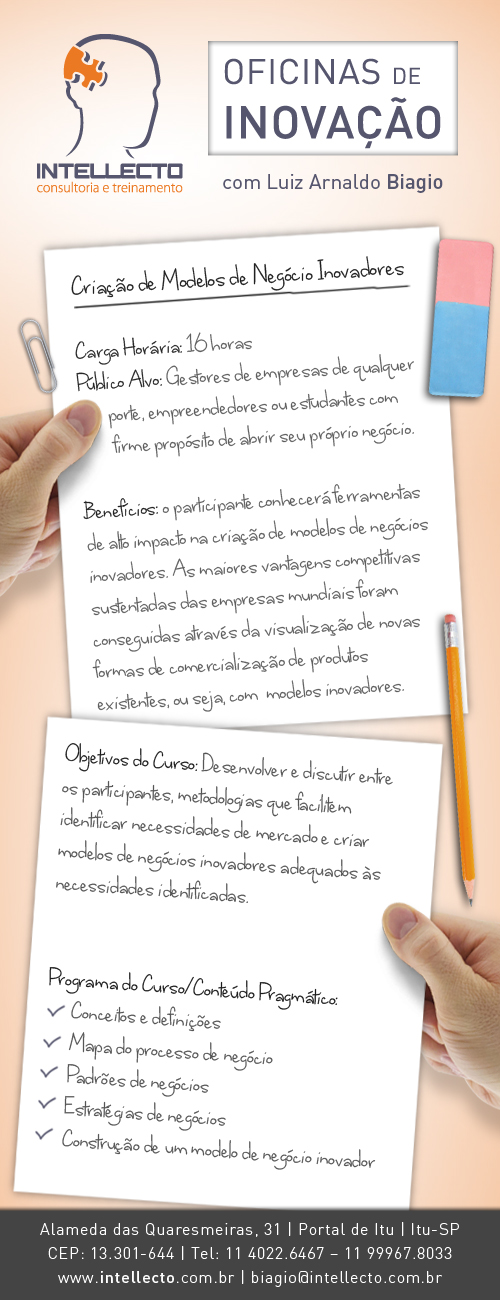 INTELLECTO
consultoria e treinamento
OFICINAS DE
INOVAÇÃO
com Luiz Arnaldo Biagio
Criação de Modelos de Negócio Inovadores
Carga Horária: 16 horas
Público Alvo: Gestores de empresas de qualquer
porte, empreendedores ou estudantes com
firme propósito de abrir seu próprio negócio.
Benefícios: o participante conhecerá ferramentas
de alto impacto na criação de modelos de negócios
inovadores. As maiores vantagens competitivas
sustentadas das empresas mundiais foram
conseguidas através da visualização de novas
formas de comercialização de produtos
existentes, ou seja, com modelos inovadores.
Objetivos do Curso: Desenvolver e discutir entre
os participantes, metodologias que facilitem
identificar necessidades de mercado e criar
modelos de negócios inovadores adequados às
necessidades identificadas.
Programa do Curso/Conteúdo Pragmático:
Conceitos e definições
Mapa do processo de negócio
Padrões de negócios
Estratégias de negócios
Construção de um modelo de negócio inovador
Alameda das Quaresmeiras, 31 | Portal de Itu | Itu-SP
CEP: 13.301-644 | Tel: 11 4022.6467 – 11 99967.8033
www.intellecto.com.br | biagio@intellecto.com.br